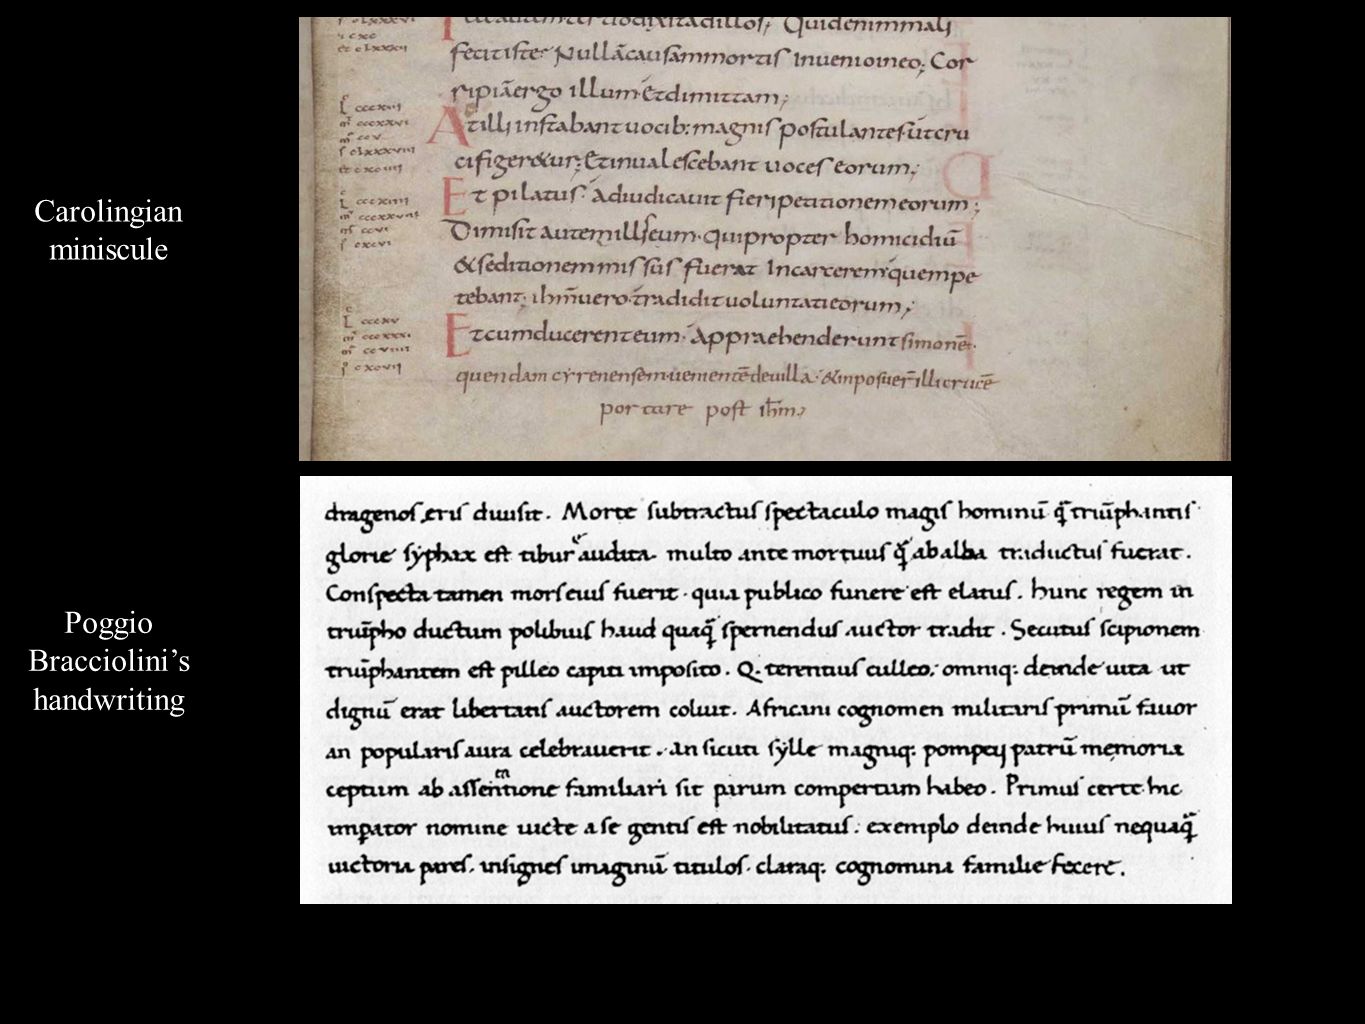 Carolingian
miniscule
fecitiste. Nullācausammortis Inuenioineo; Cor
ripiāergo illum&dimittam;
Atilli instabant uocib; magnis postulantesūtcru
cifiger&ur; Etinualescebant uoces eorum;
Et pilatus. Adiudicauit fieripetitionemeorum;
Dimisit autemilliseum. quipropter homicidiū
&seditionem missus fuerat Incarcerem. quempe
tebant. ihm̄uero. tradidituoluntatieorum;
Etcumducerenteum. Appraehenderunt simonē.
quendam cyrenensem. uenientēdeuilla. &inposuer̄illicrucē
portare post ihm̄;
Poggio
Bracciolini’s
handwriting
eris diuisit. Morte subtractus spectaculo magis hominū q̄ triūphantis
glorie syphax est tiburi audita. multo ante mortuus q̄ ab alba traductus fuerat.
Conspecta tamen mors eius fuerit. quia publico funere est elatus. hunc regem in
triūpho ductum polibius haud quaq̄ spernendus auctor tradit. Secutus scipionem
triūphantem est pilleo capiti imposito. Q. terentius culleo. omniq; deinde uita ut
dignū erat libertatis auctorem coluit. Africani cognomen militaris primū fauor
an popularis aura celebrauerit. an sicuti sylle magniq; pompeij patrū memoria
ceptum ab assentatione familiari sit parum compertum habeo. Primus certe hic
imp̄ator nomine uicte a se gentis est nobilitatus. exemplo deinde huius nequaq̄
uictoria pares. insignes imaginū titulos. claraq; cognomina familie fecere.